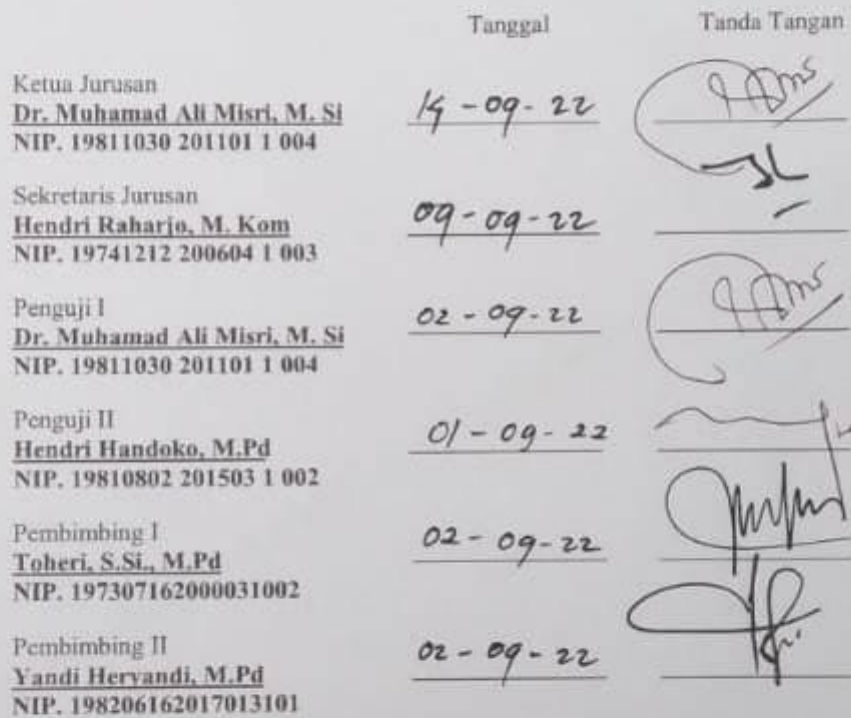 Tanggal Tanda Tangan
Ketua Jurusan
Dr. Muhamad Ali Misri, M. Si
NIP. 19811030 201101 1 004
14 - 09 - 22
Sekretaris Jurusan
Hendri Raharjo, M. Kom
NIP. 19741212 200604 1 003
09 - 09 - 22
Penguji I
Dr. Muhamad Ali Misri, M. Si
NIP. 19811030 201101 1 004
02 - 09 - 22
Penguji II
Hendri Handoko, M.Pd
NIP. 19810802 201503 1 002
01 - 09 - 22
Pembimbing I
Toheri, S.Si., M.Pd
NIP. 197307162000031002
02 - 09 - 22
Pembimbing II
Yandi Heryandi, M.Pd
NIP. 198206162017013101
02 - 09 - 22